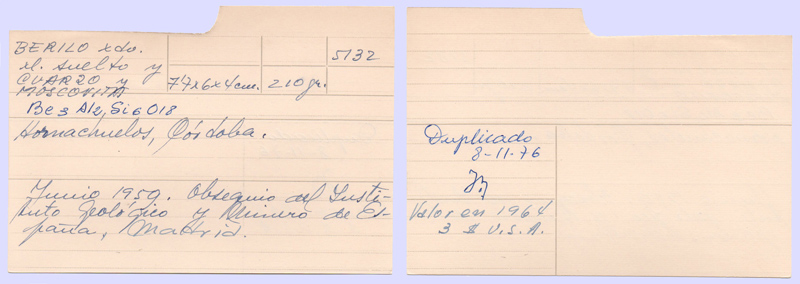 BERILO xdo.
xl. suelto y
CUARZO y
MOSCOVITA
7x6x4cm.
210gr.
5132
Be3 Al2, Si6 O18
Hornachuelos, Córdoba.
Junio 1959. Obsequio del Insti-
tuto Geológico y Minero de Es-
paña, Madrid.
Duplicado
8-11-76
Valor en 1964
3 $ U.S.A.